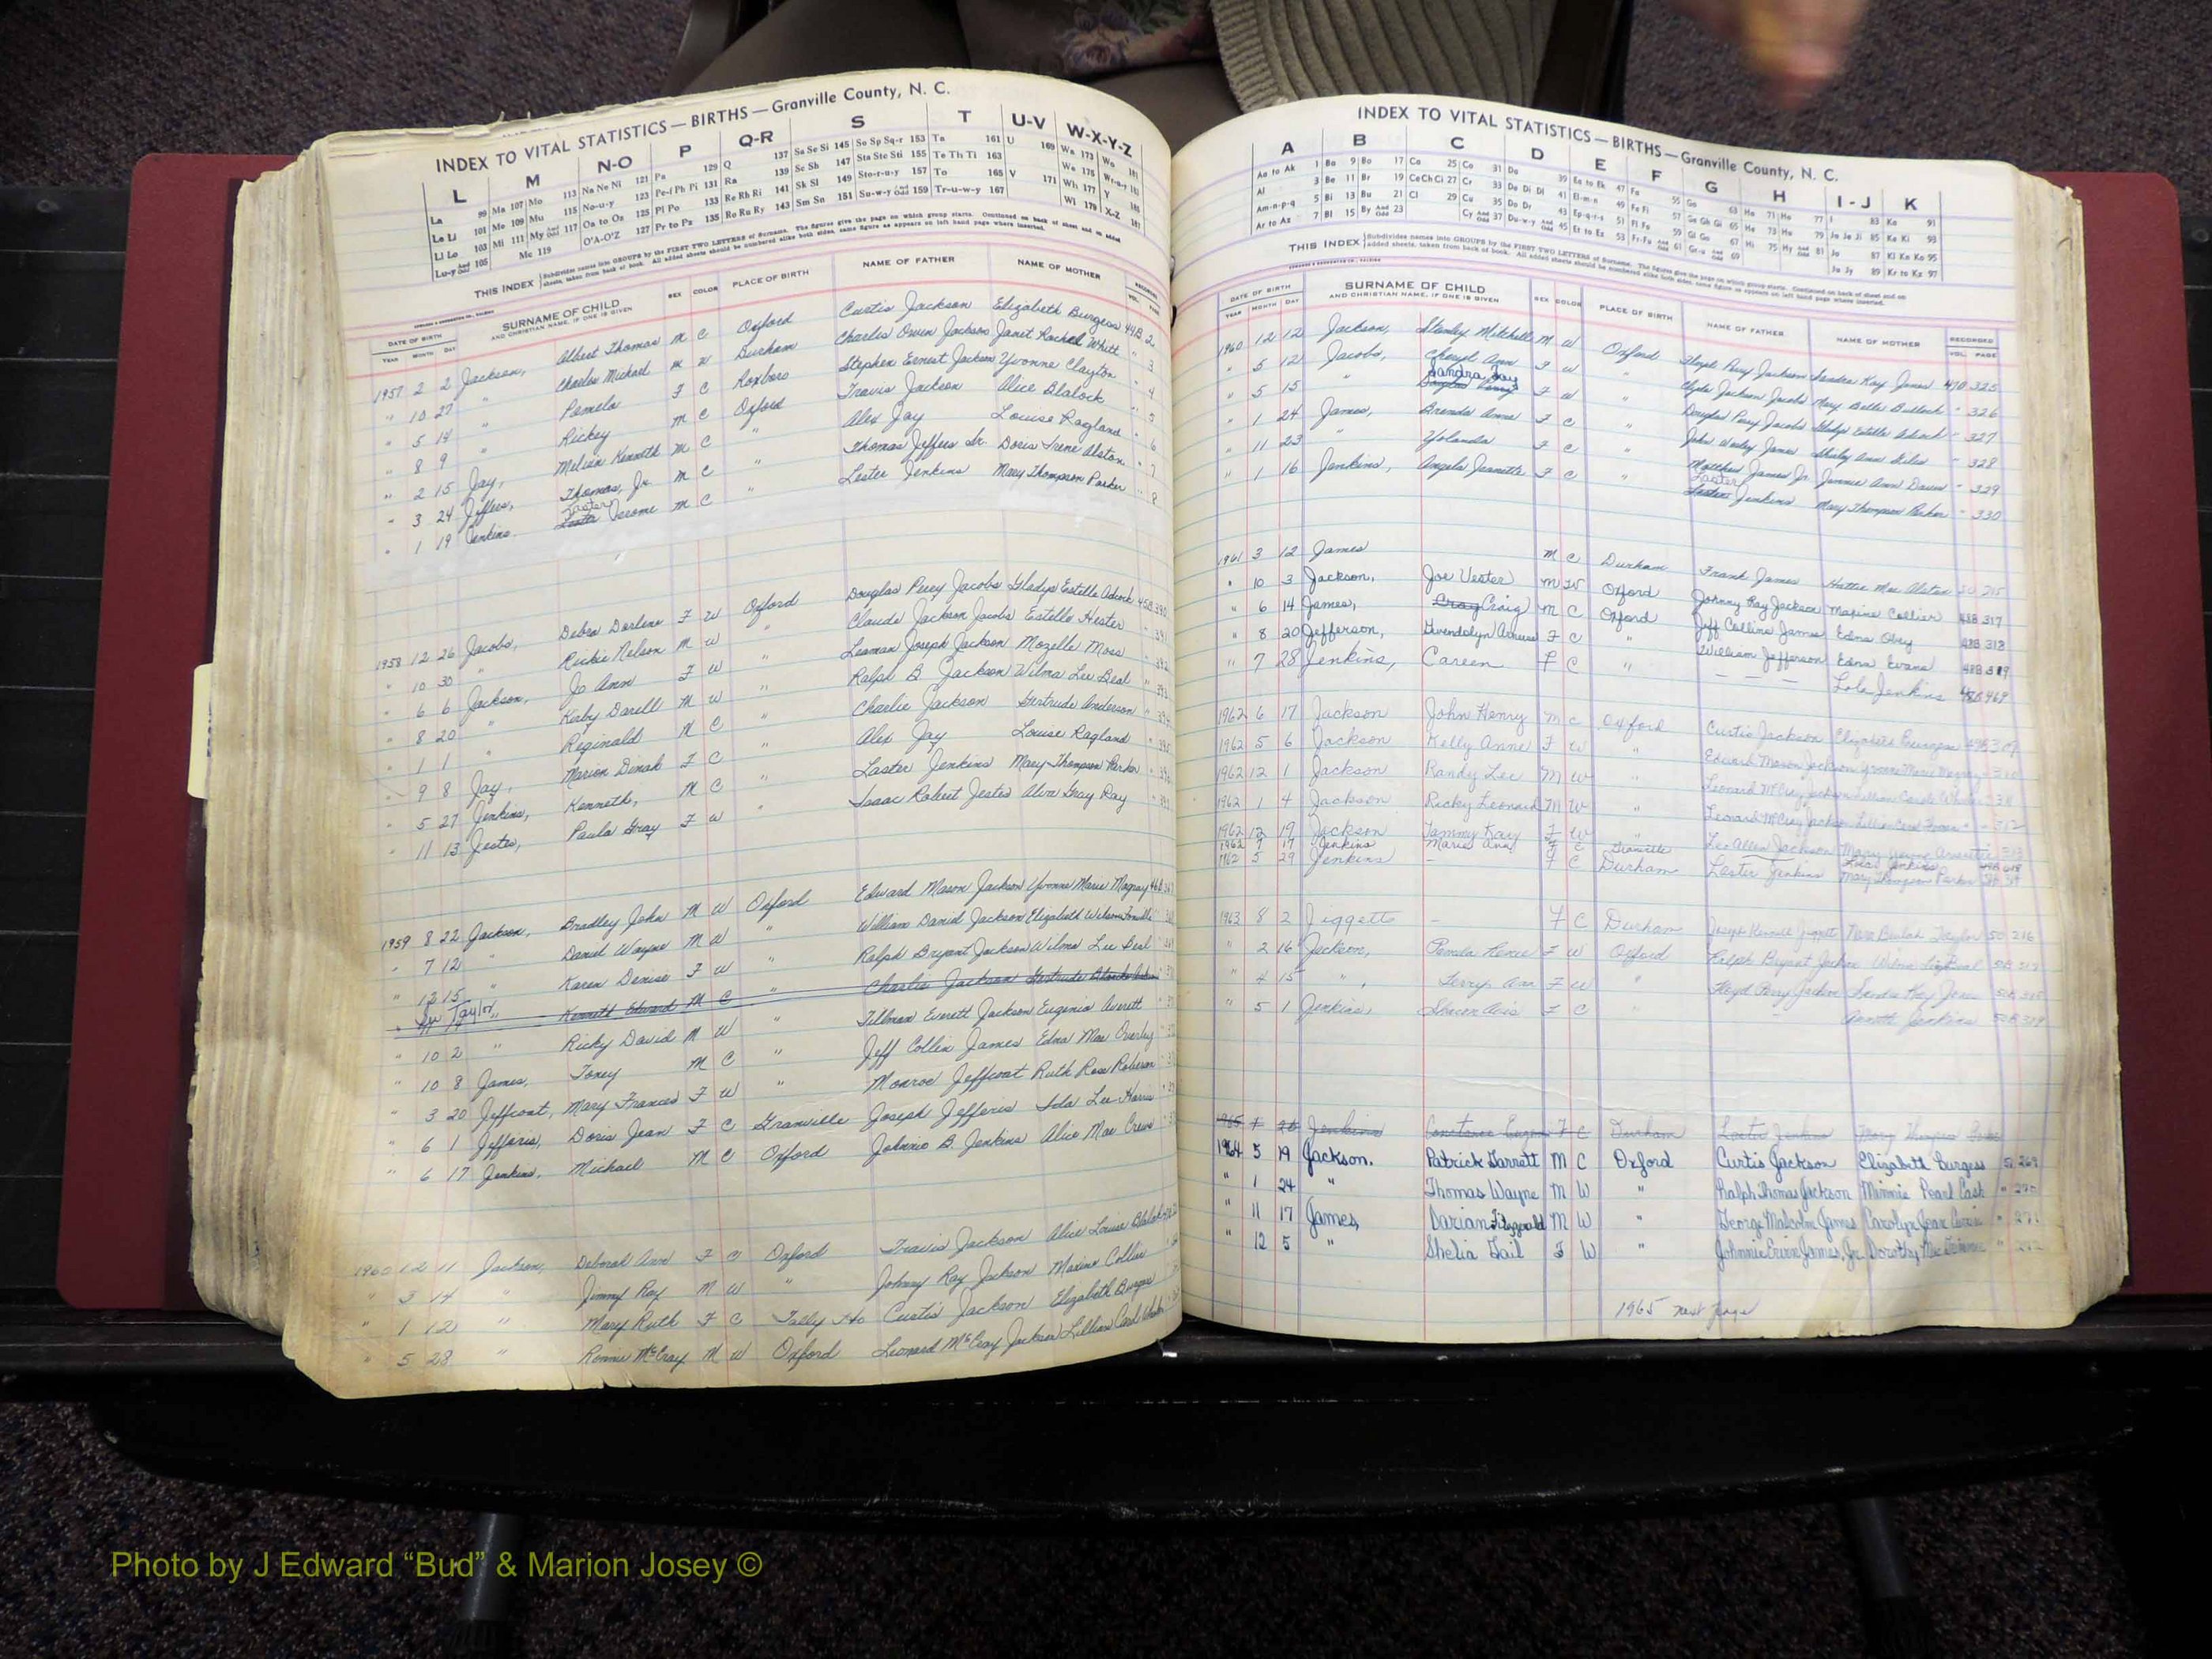 INDEX TO VITAL STATISTICS — BIRTHS — Granville County, N. C.
L M N-O P Q-R S T U-V W-X-Y-Z
La 99 Ma 107 Mo 113 Na Ne Ni 121 Pa 129 Q 137 Sa Se Si 145 So Sp Sq-r 153 Ta 161 U 169 Wa 173 Wo 181
Le Li 101 Me 109 Mu 115 No-u-y 123 Pe-f Ph Pi 131 Ra 139 Sc Sh 147 Sta Ste Sti 155 Te Th Ti 163 We 175
Li Lo 103 Mi 111 My And Odd 117 Oa to Oz 125 Pl Po 133 Re Rh Ri 141 Sk Sl 149 Sto-r-u-y 157 To 165 V 171 Wh 177 Y
Lu-y And Odd 105 Mc 119 O'A-O'Z 127 Pr to Pz 135 Ro Ru Ry 143 Sm Sn 151 Su-w-y And Odd 159 Tr-u-w-y 167 Wi 179 X-Z
THIS INDEX Subdivides names into GROUPS by the FIRST TWO LETTERS of Surname. The figures give the page on which group starts. Continued on back of sheet and on added
sheets, taken from back of book. All added sheets should be numbered alike both sides, same figure as appears on left hand page where inserted.
DATE OF BIRTH SURNAME OF CHILD SEX COLOR PLACE OF BIRTH NAME OF FATHER NAME OF MOTHER RECORDED
YEAR MONTH DAY AND CHRISTIAN NAME, IF ONE IS GIVEN VOL. PAGE
1957 2 2 Jackson, Albert Thomas M C Oxford Curtis Jackson Elizabeth Burgess 44B 2
" 10 27 " Charles Michael M W Durham Charlie Owen Jackson Janet Rachel Whitt " 3
" 5 14 " Pamela F C Roxboro Stephen Ernest Jackson Yvonne Clayton " 4
" 8 9 " Rickey M C Oxford Travis Jackson Alice Blalock " 5
" 2 15 Jay, Melvin Kenneth M C " Alex Jay Louise Ragland " 6
" 3 24 Jeffers, Thomas, Jr. M C " Thomas Jeffers Sr. Doris Irene Alston " 7
" 1 19 Jenkins. Laster Jerome M C Lester Jenkins Mary Thompson Parker " 8
1958 12 26 Jacobs, Debra Darlene F W Oxford Douglas Percy Jacobs Gladys Estelle Adcock
" 10 30 " Rickie Nelson M W " Claude Jackson Jacobs Estelle Hester
" 6 6 Jackson, Jo Ann F W " Leaman Joseph Jackson Mozelle Moss
" 8 20 " Kirby Darell M W " Ralph B. Jackson Wilma Lee Beal
" 1 1 " Reginald M C " Charlie Jackson Gertrude Anderson
" 9 8 Jay, Marion Dinah F C " Alex Jay Louise Ragland
" 5 27 Jenkins, Kenneth, M C " Laster Jenkins Mary Thompson Parker
" 11 13 Jester, Paula Gray F W " Isaac Robert Jester Alva Gray Ray
1959 8 22 Jackson, Bradley John M W Oxford Edward Mason Jackson Yvonne Marie
" 7 12 " David Wayne M W " William Daniel Jackson Elizabeth
" 12 15 " Karen Denise F W " Ralph Bryant Jackson Wilma Lee Beal
See Taylor, Kenneth Edward M C " Charlie Jackson Gertrude
" 10 2 " Ricky David M W " Tillman Everett Jackson Eugenia Averett
" 10 8 James, Toney M C " Jeff Collin James Edna Mae
" 3 20 Jeffcoat, Mary Frances F W " Monroe Jeffcoat Ruth Rose
" 6 1 Jefferis, Doris Jean F C Granville Joseph Jefferis Ida Lee Harris
" 6 17 Jenkins, Michael M C Oxford Johnnie B. Jenkins Alice Mae Crews
1960 12 11 Jackson, Deborah Ann F C Oxford Travis Jackson Alice Louise Blalock
" 3 14 " Jimmy Ray M W " Johnny Ray Jackson Maxine Collier
" 1 12 " Mary Ruth F C Tally Ho Curtis Jackson Elizabeth Burgess
" 5 28 " Ronnie McCray M W Oxford Leonard McCray Jackson Lillian Carol
INDEX TO VITAL STATISTICS — BIRTHS — Granville County, N. C.
A B C D E F G H I-J K
Aa to Ak 1 Ba 9 Bo 17 Ca 25 Co 31 Da 39 Ea to Ek 47 Fa 55 Ga 63 Ha 71 Ho 77 I 83 Ka 91
Al 3 Be 11 Br 19 Ce Ch Ci 27 Cr 33 De Di Dl 41 El-m-n 49 Fe Fi 57 Ge Gh Gi 65 He 73 Hu 79 Ja Je Ji 85 Ke Ki 93
Am-n-p-q 5 Bi 13 Bu 21 Cl 29 Cu 35 Do Dr 43 Ep-q-r-s 51 Fl Fo 59 Gl Go 67 Hi 75 Hy And Odd 81 Jo 87 Kl Kn Ko 95
Ar to Az 7 Bl 15 By And Odd 23 Cy And Odd 37 Du-w-y And Odd 45 Et to Ez 53 Fr-Fu And Odd 61 Gr-u And Odd 69 Ju Jy 89 Kr to Kz 97
THIS INDEX Subdivides names into GROUPS by the FIRST TWO LETTERS of Surname. The figures give the page on which group starts. Continued on back of sheet and on
added sheets, taken from back of book. All added sheets should be numbered alike both sides, same figure as appears on left hand page where inserted.
DATE OF BIRTH SURNAME OF CHILD SEX COLOR PLACE OF BIRTH NAME OF FATHER NAME OF MOTHER RECORDED
YEAR MONTH DAY AND CHRISTIAN NAME, IF ONE IS GIVEN VOL. PAGE
1960 12 12 Jackson, Stanley Mitchell M W Oxford Floyd Perry Jackson Sandra Kay Jones 47B 325
" 5 12 Jacobs, Cheryl Ann F W " Clyde Jackson Jacobs Mary Belle Bullock " 326
" 5 15 " Sandra Fay F W " Douglas Percy Jacobs Gladys Estelle Adcock " 327
" 1 24 James, Brenda Anne F C " John Wesley James Shirley Ann Giles " 328
" 11 23 " Yolanda F C " Matthew James Jr. Jimmie Ann Davis " 329
" 1 16 Jenkins, Angela Jeanette F C " Laster Jenkins Mary Thompson Parker " 330
1961 3 12 James M C Durham Frank James Hattie Mae Alston 50 215
" 10 3 Jackson, Joe Vester M W Oxford Johnny Ray Jackson Maxine Collier 48B 317
" 6 14 James, Craig M C Oxford Jeff Collins James Edna Obey 48B 318
" 8 20 Jefferson, Gwendolyn F C " William Jefferson Edna Evans 48B 319
" 7 28 Jenkins, Careen F C " — — — Lola Jenkins 48B 469
1962 6 17 Jackson John Henry M C Oxford Curtis Jackson Elizabeth Burgess
1962 5 6 Jackson Kelly Anne F W " Edward Mason Jackson Yvonne Marie
1962 12 1 Jackson Randy Lee M W " Leonard McCray Jackson Lillian Carol
1962 1 4 Jackson Ricky Leonard M W " Leonard McCray Jackson Lillian Carol
1962 12 19 Jackson Tammy Kay F W " Leo Allen Jackson Mary
1962 9 17 Jenkins Marie Ann F C Granville Jenkins
1962 5 29 Jenkins – F C Durham Lester Jenkins Mary Thompson Parker
1963 8 2 Jiggetts – F C Durham Joseph Kennell Jiggetts Nora Beulah Taylor 50 216
" 2 16 Jackson, Pamela Renee F W Oxford Ralph Bryant Jackson Wilma
" 4 15 " Terry Ann F W " Floyd Perry Jackson Sandra Kay Jones
" 5 1 Jenkins, Sharon Avis F C Annette Jenkins
1965 Jenkins Constance F C Durham Laster Jenkins Mary Thompson
1964 5 19 Jackson. Patrick Garrett M C Oxford Curtis Jackson Elizabeth Burgess 51 269
" 1 24 " Thomas Wayne M W " Ralph Thomas Jackson Minnie Pearl Cash " 270
" 11 17 James, Darian Fitzgerald M W " George Malcolm James Carolyn Jean " 271
" 12 5 " Shelia Gail F W " Johnnie Ervin James, Jr. Dorothy Mae " 272
1965 next page
Photo by J Edward “Bud” & Marion Josey ©